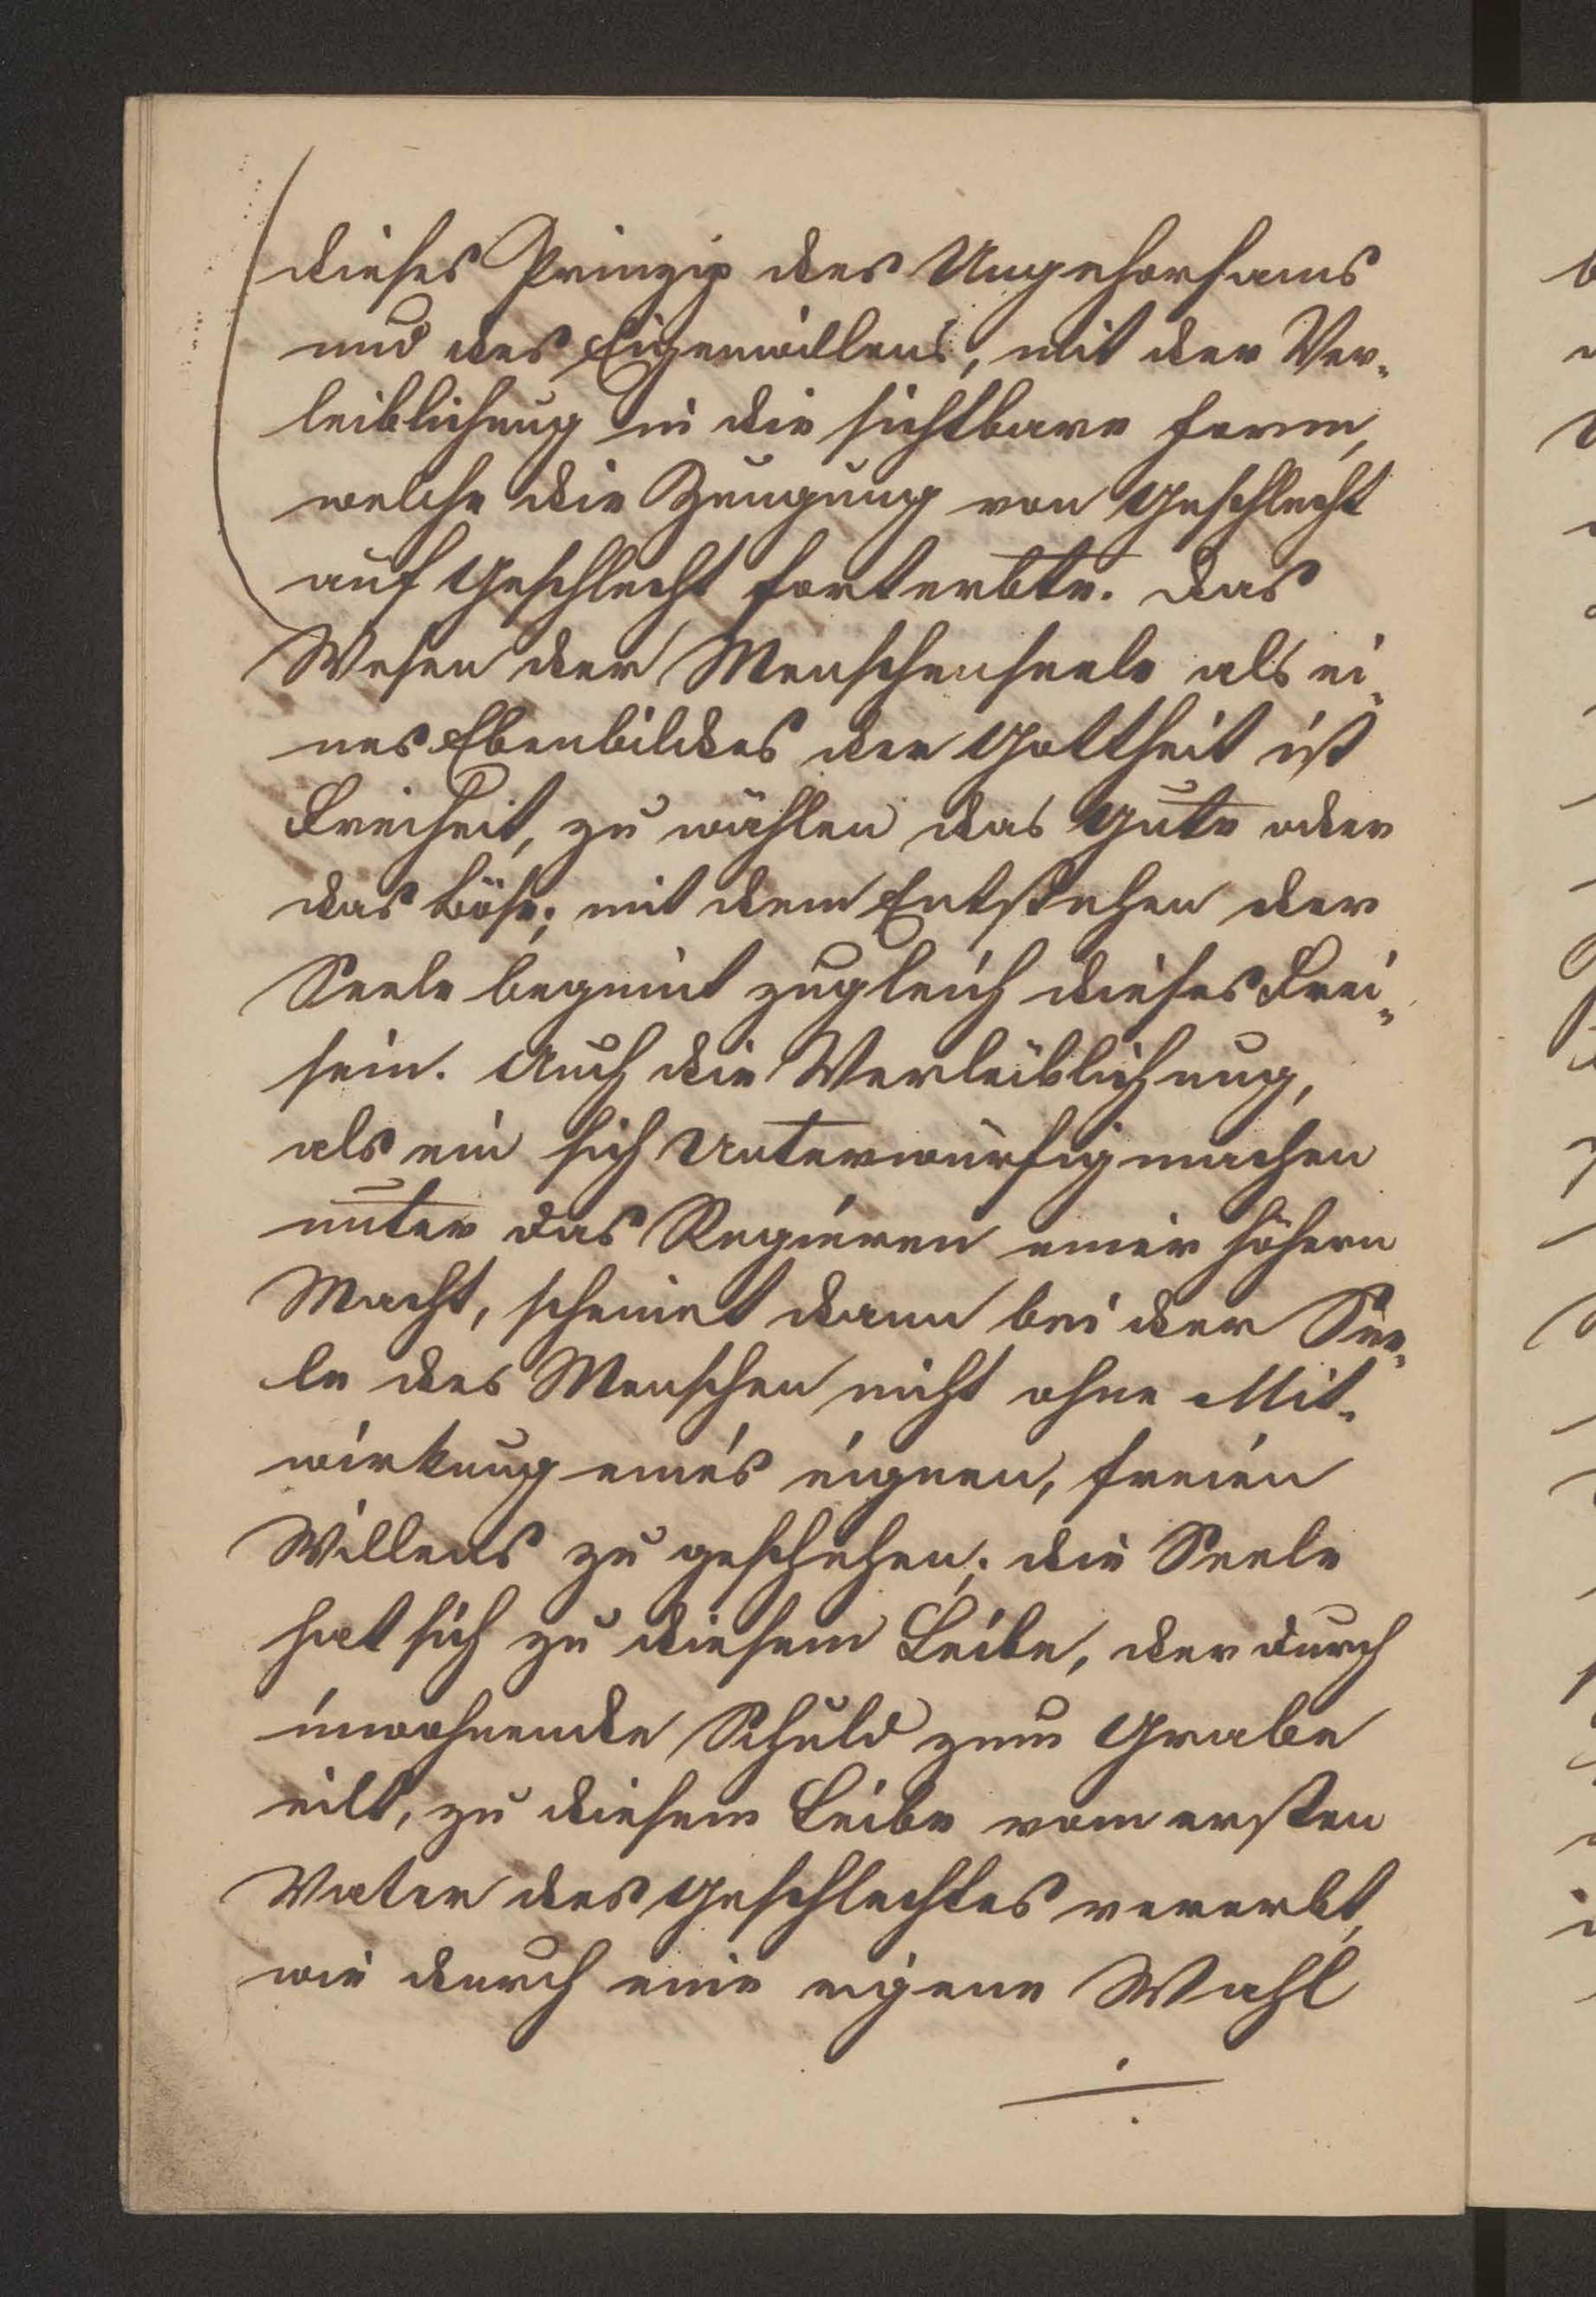 dieses Prinzip des Ungehorsams
und des Eigenwillens, mit der Ver-
leiblichung in die sichtbare Form,
welche die Zeugung von Geschlecht
auf Geschlecht forterbte. Das
Wesen der Menschenseele als ei-
nes Ebenbildes der Gottheit ist
Freiheit, zu wählen das Gute oder
das Böse; mit dem Entstehen der
Seele beginnt zugleich dieses Frei-
sein. Auch die Verleiblichung,
als ein sich Unterwürfigmachen
unter das Regieren einer höhern
Macht, scheinet dann bei der See-
le des Menschen nicht ohne Mit-
wirkung eines eignen, freien
Willens zu geschehen; die Seele
hat sich zu diesem Leibe, der durch
inwohnende Schuld zum Grabe
eilt, zu diesem Leibe vom ersten
Vater des Geschlechtes vererbt,
wie durch eine eigene Wahl